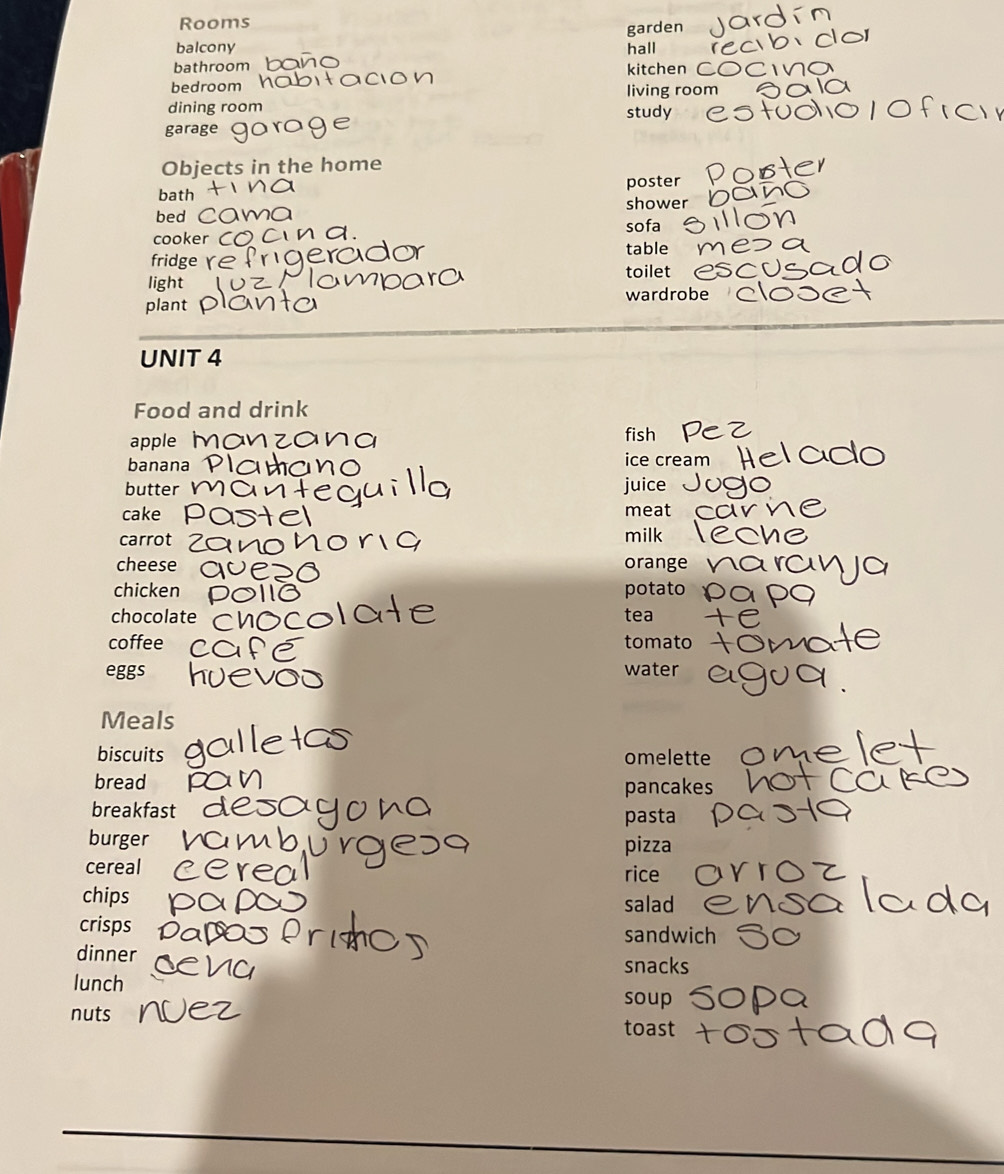 Rooms
balcony
bathroom baño
bedroom habitacion
dining room
garage garage
garden Jardín
hall recibidor
kitchen cocina
living room sala
study estudio/Ofici
Objects in the home
bath tina
bed cama
cooker cocina.
fridge refrigerador
light luz/lampara
plant planta
poster Poster
shower baño
sofa sillón
table mesa
toilet escusado
wardrobe closet
UNIT 4
Food and drink
apple manzana
banana Platano
butter mantequilla
cake Pastel
carrot zanohoria
cheese queso
chicken pollo
chocolate chocolate
coffee café
eggs huevos
fish Pez
ice cream Helado
juice Jugo
meat carne
milk leche
orange naranja
potato papa
tea te
tomato tomate
water agua.
Meals
biscuits galletas
bread pan
breakfast desayona
burger hamburgesa
cereal cereal
chips papas
crisps papas
dinner cena
lunch
nuts nuez
omelette omelet
pancakes hot cakes
pasta pasta
pizza
rice arroz
salad ensalada
sandwich so
snacks
soup sopa
toast tostada